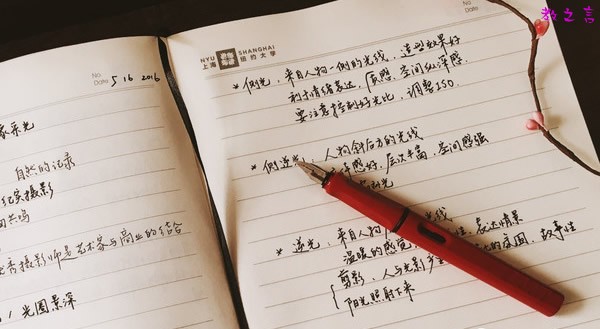 No
Date 5 16 2016
自然的记录
纪实摄影
商摄影师是艺术家与商业的结合
光圈景深
教之言
NYU SHANGHAI
上海 纽约大学
No
Date
* 侧光，来自人物一侧的光线，造型效果好
利于情绪表达，质感、空间纵深感
要注意控制好光比，调整ISO.
* 侧逆光 人物斜后方的光线
感好，层次丰富，空间感强
* 逆光，来自人物 光线
温暖的感觉 表达情景
剪影，人与光影 的氛围，故事性
阳光照射下来